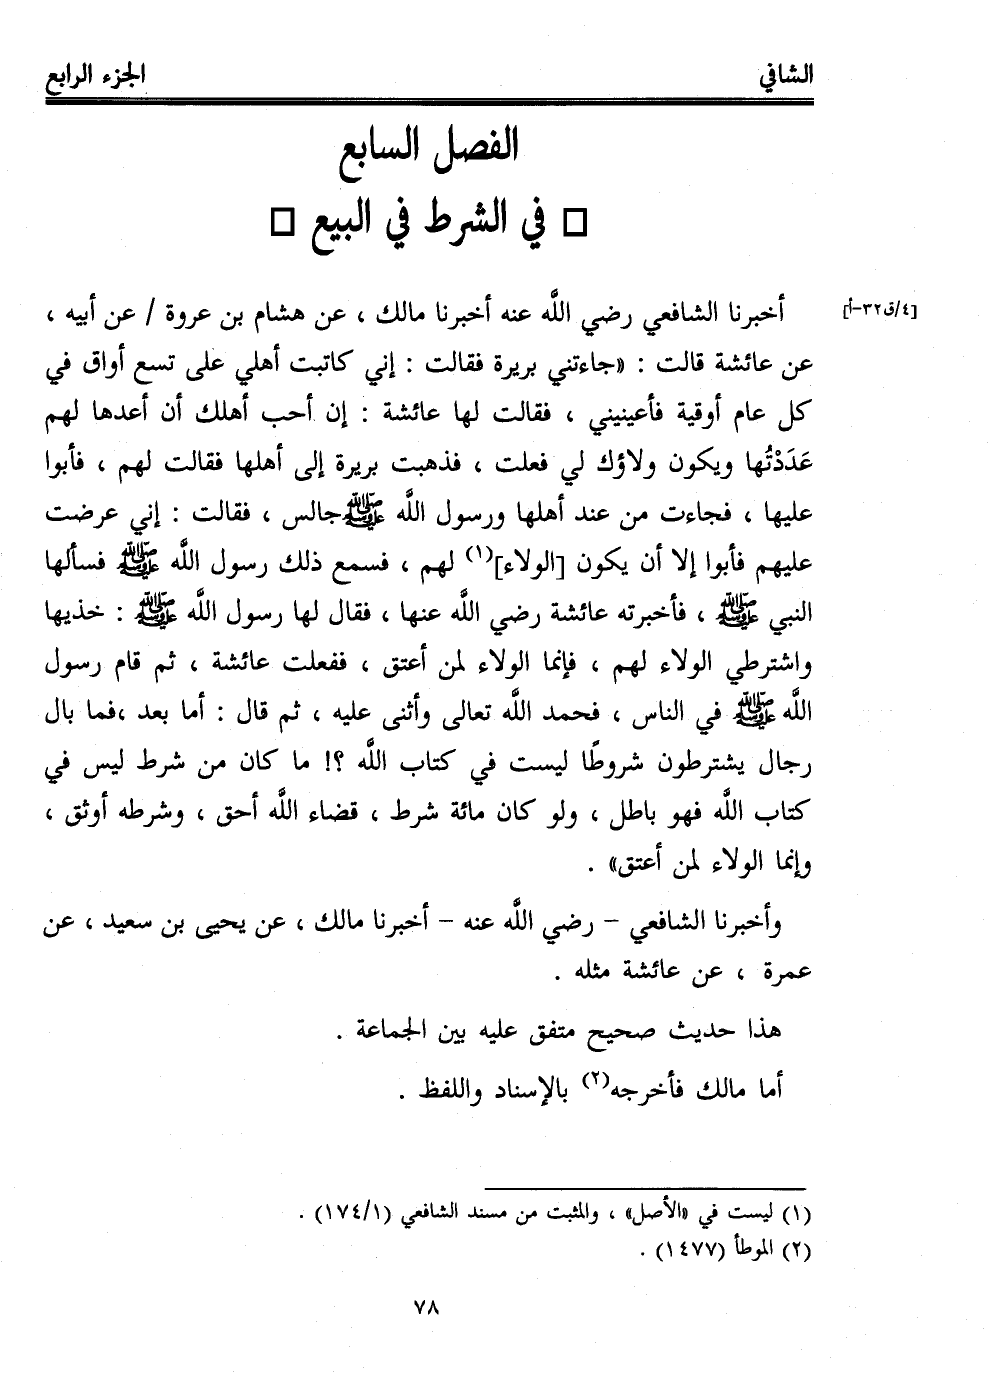 الشافي الجزء الرابع
الفصل السابع
□ في الشرط في البيع □
[٤/ق٣٢-أ]
أخبرنا الشافعي رضي اللَّه عنه أخبرنا مالك ، عن هشام بن عروة / عن أبيه ،
عن عائشة قالت : «جاءتني بريرة فقالت : إني كاتبت أهلي على تسع أواق في
كل عام أوقية فأعينيني ، فقالت لها عائشة : إن أحب أهلك أن أعدها لهم
عَدَدْتُها ويكون ولاؤك لي فعلت ، فذهبت بريرة إلى أهلها فقالت لهم ، فأبوا
عليها ، فجاءت من عند أهلها ورسول اللَّه ﷺ جالس ، فقالت : إني عرضت
عليهم فأبوا إلا أن يكون [الولاء](١) لهم ، فسمع ذلك رسول اللَّه ﷺ فسألها
النبي ﷺ ، فأخبرته عائشة رضي اللَّه عنها ، فقال لها رسول اللَّه ﷺ : خذيها
واشترطي الولاء لهم ، فإنما الولاء لمن أعتق ، ففعلت عائشة ، ثم قام رسول
اللَّه ﷺ في الناس ، فحمد اللَّه تعالى وأثنى عليه ، ثم قال : أما بعد ،فما بال
رجال يشترطون شروطًا ليست في كتاب اللَّه ؟! ما كان من شرط ليس في
كتاب اللَّه فهو باطل ، ولو كان مائة شرط ، قضاء اللَّه أحق ، وشرطه أوثق ،
وإنما الولاء لمن أعتق» .
وأخبرنا الشافعي - رضي اللَّه عنه - أخبرنا مالك ، عن يحيى بن سعيد ، عن
عمرة ، عن عائشة مثله .
هذا حديث صحيح متفق عليه بين الجماعة .
أما مالك فأخرجه(٢) بالإسناد واللفظ .
(١) ليست في «الأصل» ، والمثبت من مسند الشافعي (١٧٤/١) .
(٢) الموطأ (١٤٧٧) .
٧٨